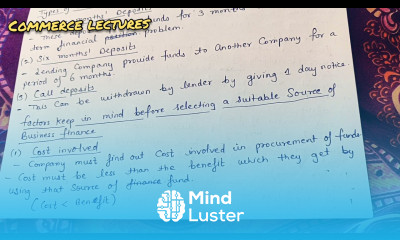 Types of
months' Deposits
COMMERCE LECTURES
- These funds for 3 months
term financial problem
(2) Six months' Deposits
- Lending Company provide funds to another Company for a
period of 6 months.
(3) Call deposits
- This can be withdrawn by lender by giving 1 day notice.
factors keep in mind before selecting a suitable Source of
Business finance
(1) Cost involved
- Company must find out Cost involved in procurement of funds
- Cost must be less than the benefit which they get by
using that source of finance fund.
(Cost < Benefit)
Mind
Luster